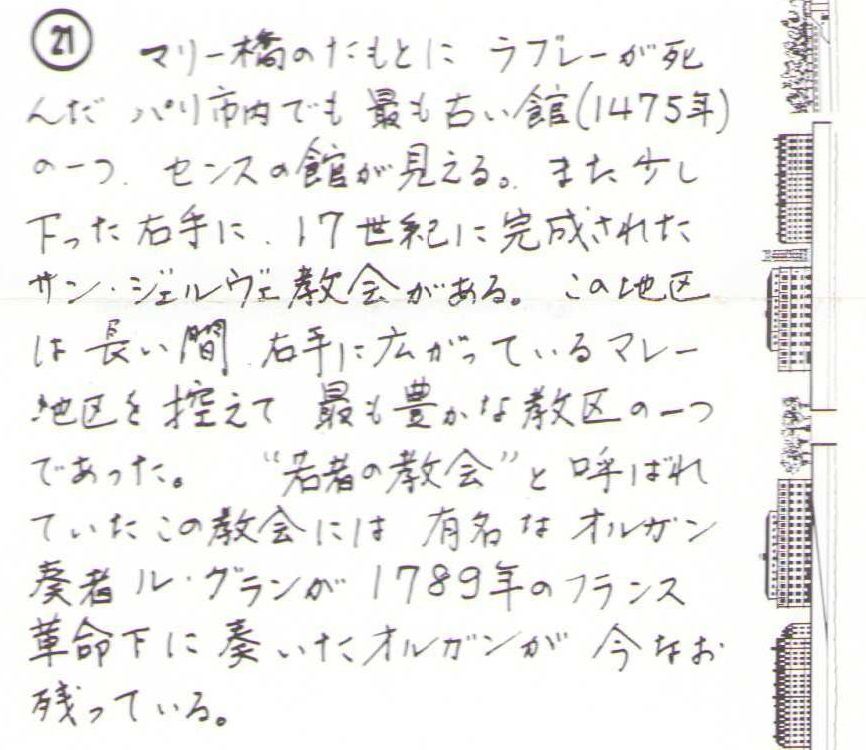 21 マリー橋のたもとに ラブレーが死
んだ パリ市内でも 最も古い館(1475年)
の一つ、センスの館が見える。また少し
下った右手に、17世紀に完成された
サン・ジェルヴェ教会がある。この地区
は長い間、右手に広がっているマレー
地区を控えて 最も豊かな教区の一つ
であった。 “若者の教会”と呼ばれ
ていたこの教会には 有名なオルガン
奏者ル・グランが1789年のフランス
革命下に奏いたオルガンが 今なお
残っている。